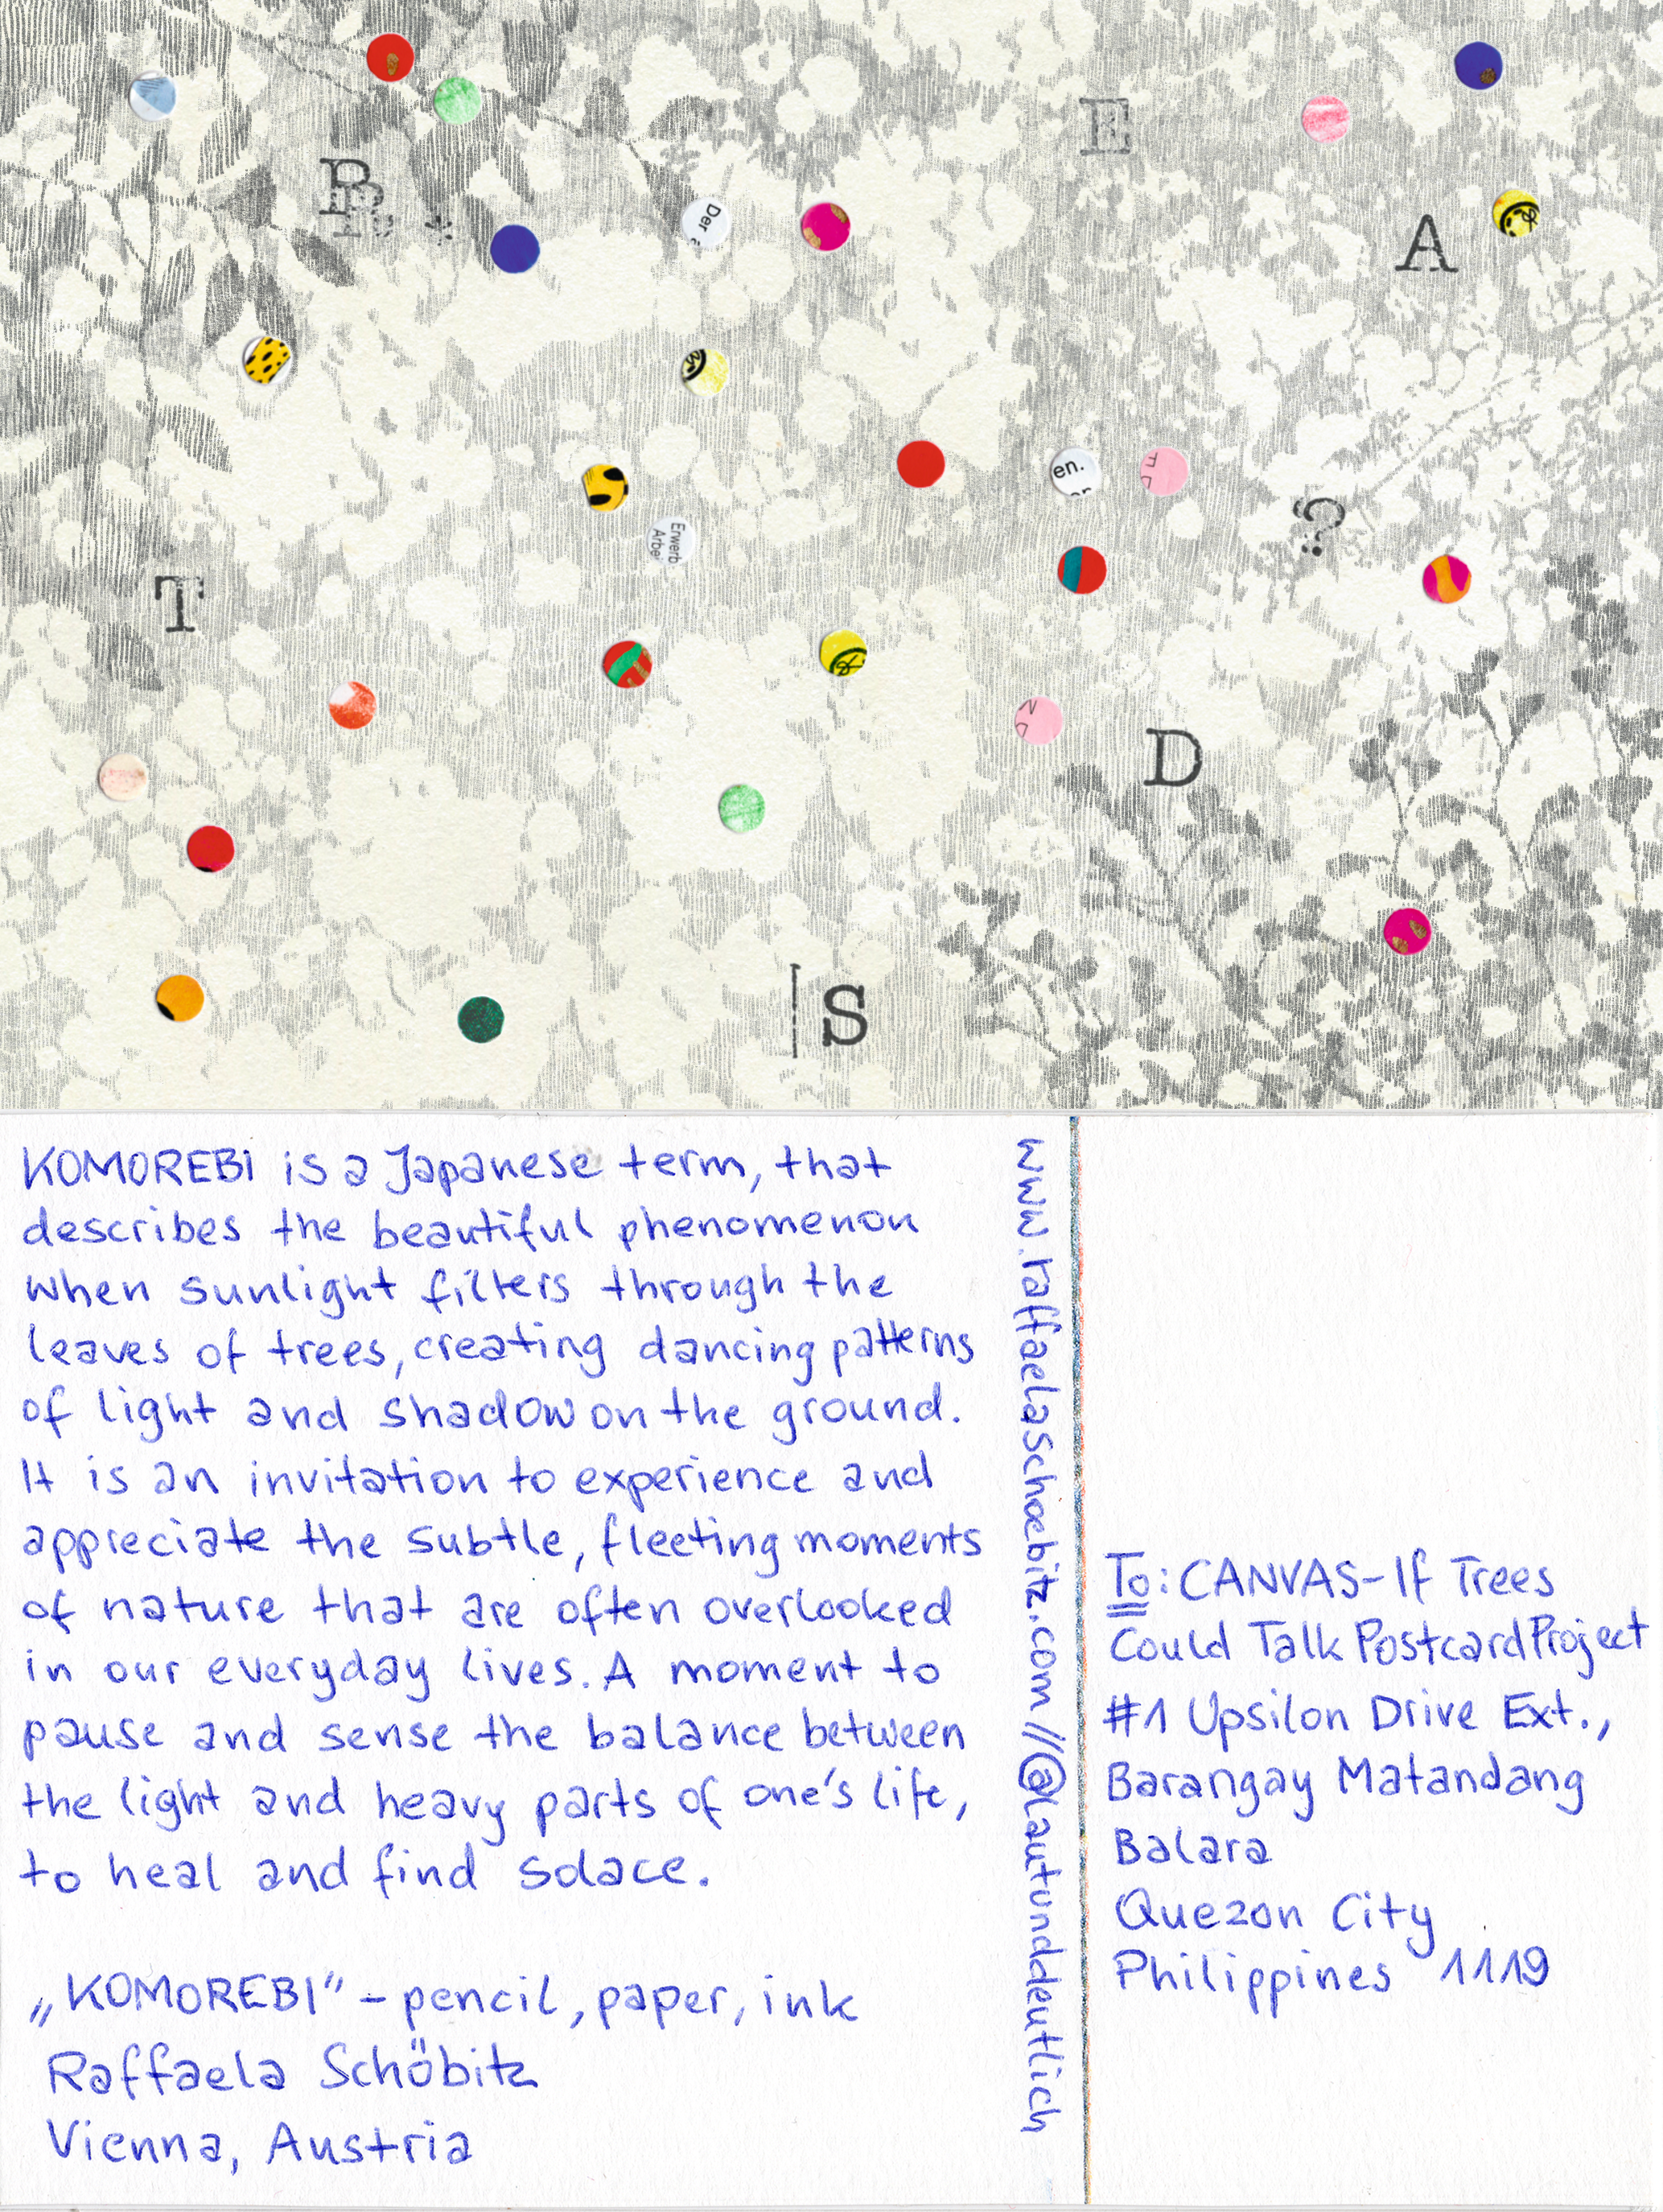 B
E
A
*
Der
en.
Erwerb
Arbei
?
T
D
S
KOMOREBI is a Japanese term, that
describes the beautiful phenomenon
when sunlight filters through the
leaves of trees, creating dancing patterns
of light and shadow on the ground.
It is an invitation to experience and
appreciate the subtle, fleeting moments
of nature that are often overlooked
in our everyday lives. A moment to
pause and sense the balance between
the light and heavy parts of one's life,
to heal and find solace.
„KOMOREBI" - pencil, paper, ink
Raffaela Schöbitz
Vienna, Austria
www.raffaelaschoebitz.com //@lautunddeutlich
To: CANVAS-If Trees
Could Talk Postcard Project
#1 Upsilon Drive Ext.,
Barangay Matandang
Balara
Quezon City
Philippines 1119